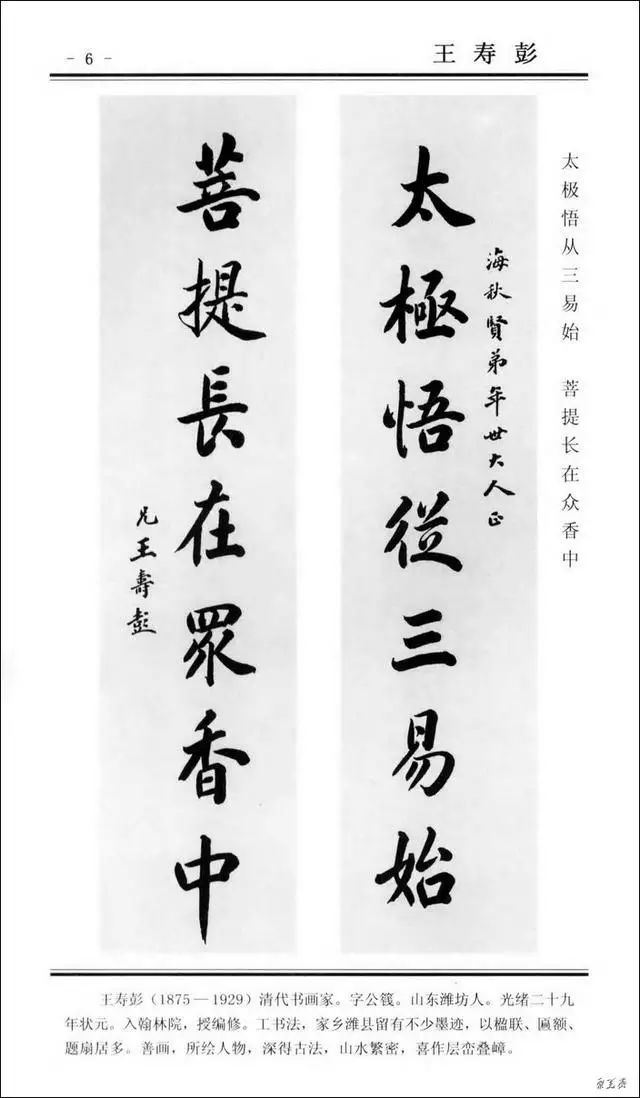 - 6 -
王寿彭
太极悟从三易始 菩提长在众香中
海秋賢弟年世大人正
太極悟從三易始
菩提長在眾香中
兄王壽彭
王寿彭(1875—1929)清代书画家。字公篯。山东潍坊人。光绪二十九
年状元。入翰林院,授编修。工书法,家乡潍县留有不少墨迹,以楹联、匾额、
题扇居多。善画,所绘人物,深得古法,山水繁密,喜作层峦叠嶂。